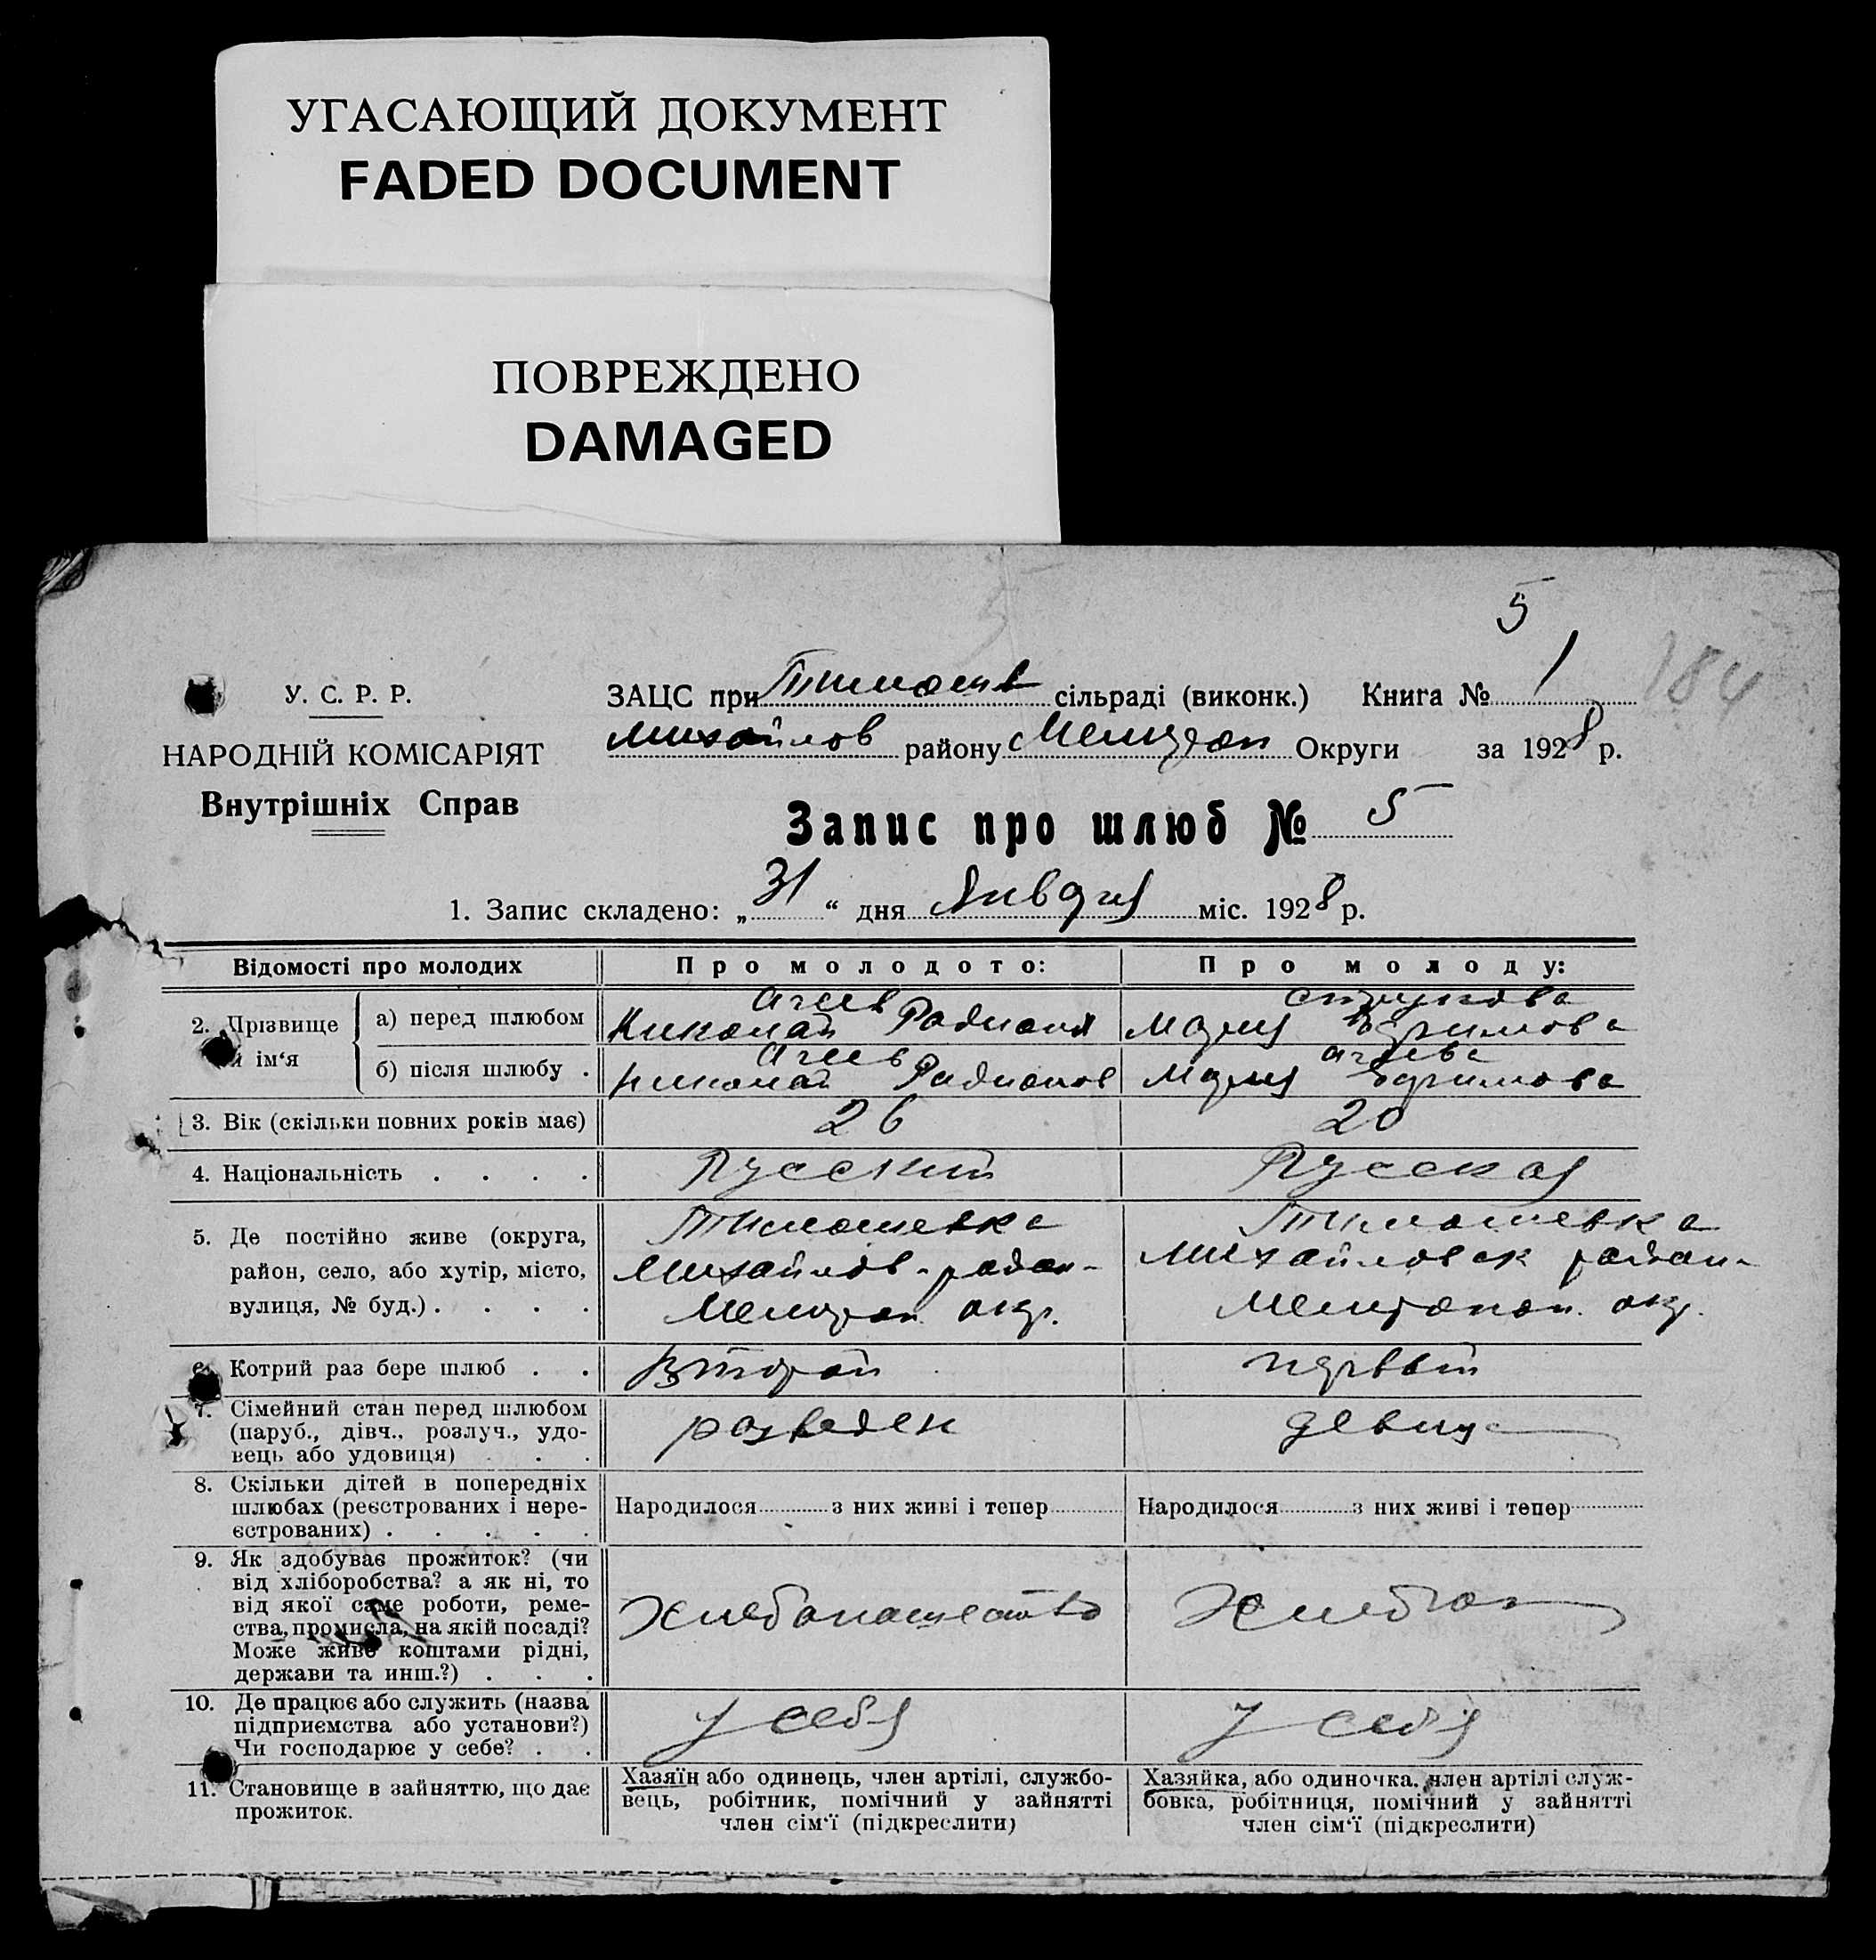 УГАСАЮЩИЙ ДОКУМЕНТ
FADED DOCUMENT
ПОВРЕЖДЕНО
DAMAGED
5
184
У. С. Р. Р.
НАРОДНІЙ КОМІСАРІЯТ
Внутрішніх Справ
ЗАЦС при Тимошев сільраді (виконк.) Книга № 1
Михайлов району Мелитоп Округи за 1928 р.
Запис про шлюб № 5
1. Запис складено: „31“ дня Января міс. 1928 р.
Відомості про молодих
Про молодого:
Про молоду:
2. Прізвище й ім‘я
а) перед шлюбом
Агеев
Николай Радионов
Струкова
Мария Ефимова
б) після шлюбу .
Агеев
Николай Радионов
Агеева
Мария Ефимова
3. Вік (скільки повних років має)
26
20
4. Національність . . . .
Русский
Русская
5. Де постійно живе (округа,
район, село, або хутір, місто,
вулиця, № буд.) . . . .
Тимошевка
Михайлов-район-
Мелитоп. окр.
Тимошевка
Михайловск район-
Мелитопол. окр.
6. Котрий раз бере шлюб . .
Второй
первый
7. Сімейний стан перед шлюбом
(паруб., дівч., розлуч., удо-
вець або удовиця) . . .
разведен
девица
8. Скільки дітей в попередніх
шлюбах (реєстрованих і нере-
єстрованих) . . . . .
Народилося.........з них живі і тепер.........
Народилося.........з них живі і тепер.........
9. Як здобуває прожиток? (чи
від хліборобства? а як ні, то
від якої саме роботи, реме-
ства, промисла, на якій посаді?
Може живе коштами рідні,
держави та инш.?) . . .
Хлебопашество
Хлебоп
10. Де працює або служить (назва
підприємства або установи?)
Чи господарює у себе? . .
у себя
у себя
11. Становище в зайняттю, що дає
прожиток.
Хазяїн або одинець, член артілі, службо-
вець, робітник, помічний у зайнятті
член сім‘ї (підкреслити)
Хазяйка, або одиночка. член артілі служ-
бовка, робітниця, помічний у зайнятті
член сім‘ї (підкреслити)